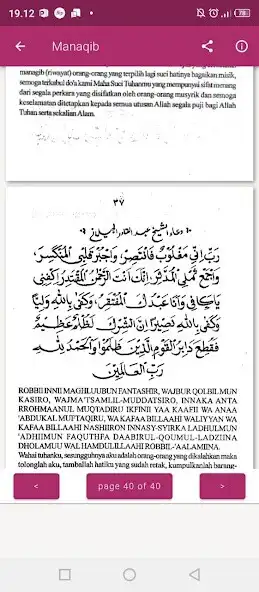 19.12
78
Manaqib
manaqib (riwayat) orang-orang yang terpilih lagi suci hatinya bagaikan misik,
semoga terkabul do'a kami Maha Suci Tuhanmu yang mempunyai sifat menang
dari segala perkara yang disifatkan oleh orang-orang musyrik dan semoga
keselamatan ditetapkan kepada semua utusan Allah segala puji bagi Allah
Tuhan serta sekalian Alam.
٣٧
دعاء الشيخ عبد القادر الجيلاني
رَبِّ اِنِّي مَغْلُوْبٌ فَانْتَصِرْ، وَاجْبُرْ قَلْبِيَ الْمُنْكَسِرَ،
وَاجْمَعْ شَمْلِيَ الْمُدَّثِرَ، اِنَّكَ اَنْتَ الرَّحْمٰنُ الْمُقْتَدِرُ، اِكْفِنِيْ
يَا كَافِيْ وَاَنَا عَبْدُكَ الْمُفْتَقِرُ، وَكَفٰى بِاللهِ وَلِيًّا
وَكَفٰى بِاللهِ نَصِيْرًا اِنَّ الشِّرْكَ لَظُلْمٌ عَظِيْمٌ
فَقُطِعَ دَابِرُ الْقَوْمِ الَّذِيْنَ ظَلَمُوْا وَالْحَمْدُ لِلّٰهِ
رَبِّ الْعَالَمِيْنَ
ROBBII INNII MAGHLUUBUN FANTASHIR, WAJBUR QOLBIL MUN
KASIRO, WAJMA'TSAMLIL-MUDDATSIRO, INNAKA ANTA
RROHMAANUL MUQTADIRU IKFINII YAA KAAFII WA ANAA
'ABDUKAL MUFTAQIRU, WA KAFAA BILLAAHI WALIYYAN WA
KAFAA BILLAAHI NASHIIRON INNASY-SYIRKA LADHULMUN
'ADHIIMUN FAQUTHI'A DAABIRUL-QOUMUL-LADZIINA
DHOLAMUU WAL HAMDULILLAAHI ROBBIL-'AALAMIINA.
Wahai tuhanku, sesungguhnya aku adalah orang-orang yang dikalahkan maka
tolonglah aku, tamballah hatiku yang sudah retak, kumpulkanlah barang-
<
page 40 of 40
>